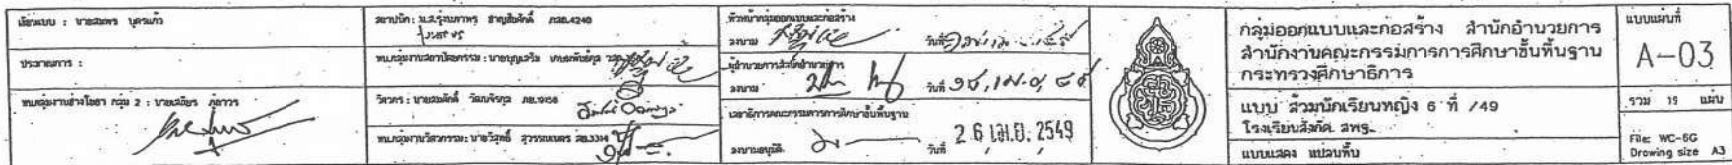 เขียนแบบ : นายสมพร บุตรแก้ว
ประมาณการ :
หน.กลุ่มงานช่างโยธา กลุ่ม 2 : นายเสถียร
สถาปนิก : น.ส.รุ่งนภาพร ชาญสืบศักดิ์ ภสถ.4240
หน.กลุ่มงานสถาปัตยกรรม : นายบุญเสริม
วิศวกร : นายสมศักดิ์ วัฒนจิรกุล
หน.กลุ่มงานวิศวกรรม : นายวิสุทธิ์ สุวรรณเนตร สย.3314
หัวหน้ากลุ่มออกแบบและก่อสร้าง
ลงนาม วันที่
ผู้อำนวยการสำนักอำนวยการ
ลงนาม วันที่
เลขาธิการคณะกรรมการการศึกษาขั้นพื้นฐาน
ลงนามอนุมัติ วันที่ 26 เม.ย. 2549
กลุ่มออกแบบและก่อสร้าง สำนักอำนวยการ
สำนักงานคณะกรรมการการศึกษาขั้นพื้นฐาน
กระทรวงศึกษาธิการ
แบบ ส้วมนักเรียนหญิง 6 ที่ /49
โรงเรียนสังกัด สพฐ.
แบบแสดง แปลนพื้น
แบบแผ่นที่
A-03
รวม 19 แผ่น
File: WC-6G
Drawing size A3